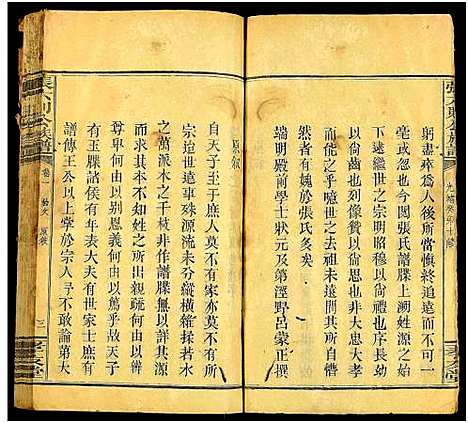 躬盡瘁為人後所當慎終追遠而不可一
毫或忽也今閱張氏譜牒上溯姓源之
下逮繼世之宗明昭穆也而貽謀燕翼
尚齒尚德列像贊以崇思也非大忠大孝
之裔而能之乎去祖未遠福未艾也而
張者有媿於張氏多矣
端明殿前學士狀元及第涇野呂蒙正撰
原叙
自天子至于庶人莫不有家亦莫不有所
始迨世遠年殊源流未分縱橫雜揉若水
之萬派木之千枝非作譜牒以詳其源
深其本亦不知姓之所出親疏何由以辨
尊卑何由以別恩義何由以篤乎故天子
有玉牒諸侯有年表大夫有世家士庶有
譜傳王公以上掌於宗人予不敢論第大
張大則公族譜
卷一
原叙
三
孝友堂